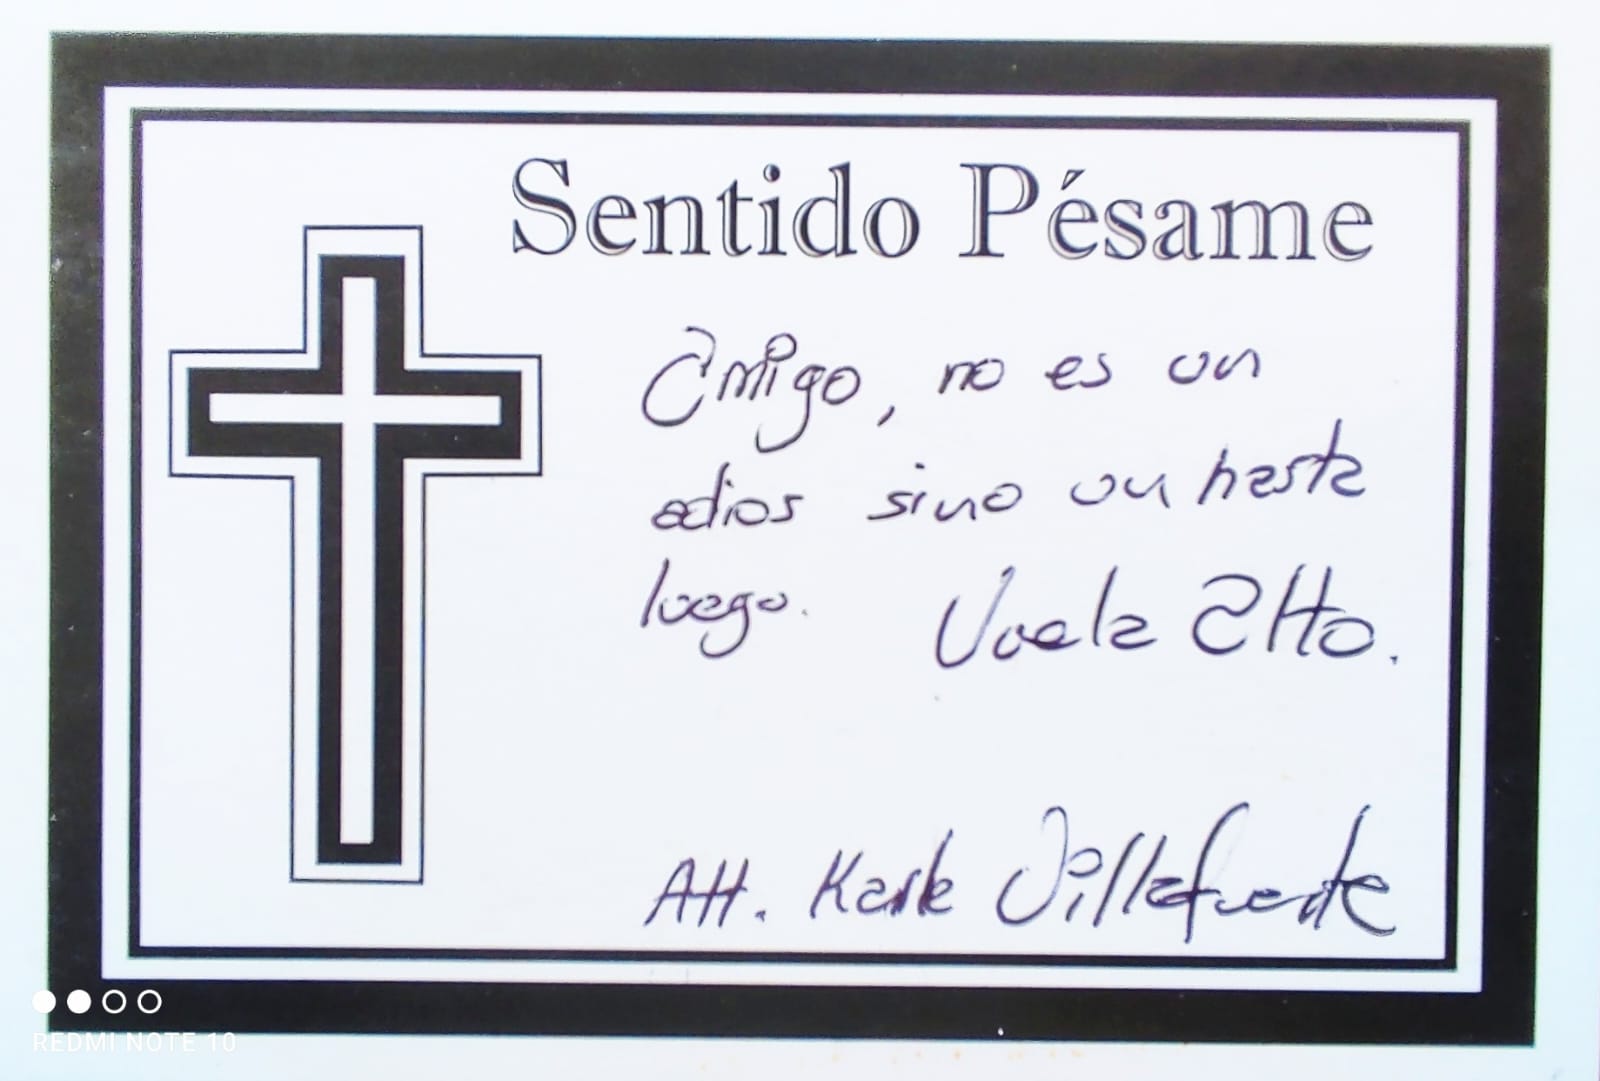 Sentido Pésame
Amigo, no es un
adios sino un hasta
luego. Vuela alto.
Att. Karla Villafuerte
REDMI NOTE 10